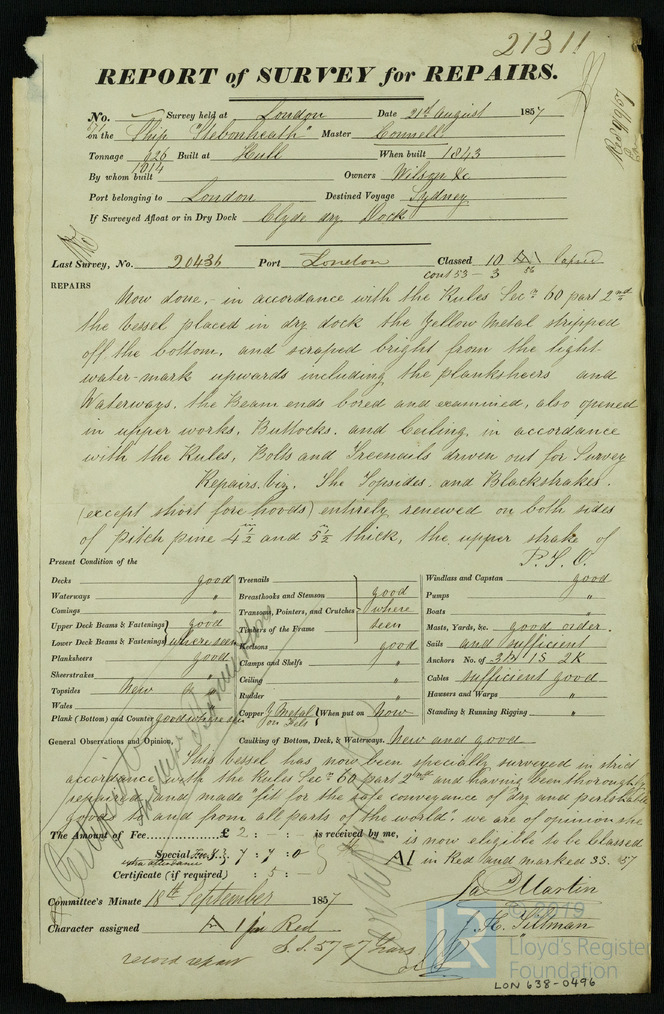 21311
REPORT of SURVEY for REPAIRS.
No. — Survey held at London Date 21st August 1857
on the Ship "Stebonheath" Master Connell
Tonnage 826 Built at Hull When built 1843
1014
By whom built Owners Wilson &c
Port belonging to London Destined Voyage Sydney
If Surveyed Afloat or in Dry Dock Clyde dry Dock
Last Survey, No. 20436 Port London Classed 10 A1
cont 53 - 3
REPAIRS
Now done, - in accordance with the Rules Secn 60 part 2nd
the Vessel placed in dry dock the Yellow Metal stripped
off the bottom, and scraped bright from the light
water-mark upwards including the planksheers and
Waterways, the Beam ends bored and examined, also opened
in upper works, Buttocks, and Ceiling, in accordance
with the Rules, Bolts and Treenails driven out for Survey
Repairs. Viz. The Topsides and Blackstrakes.
(except short fore hoods) entirely renewed on both sides
of pitch pine 4 1/2 and 5 1/2 thick, the upper strake of
P.T.O.
Present Condition of the
Decks good
Waterways "
Comings "
Upper Deck Beams & Fastenings good
Lower Deck Beams & Fastenings where seen
Planksheers good
Sheerstrakes
Topsides New
Wales "
Plank (Bottom) and Counter good where seen
Treenails
Breasthooks and Stemson good
Transoms, Pointers, and Crutches where
Timbers of the Frame seen
Keelsons good
Clamps and Shelfs "
Ceiling "
Rudder "
Copper Y Metal When put on Now
on Felt
Windlass and Capstan good
Pumps "
Boats "
Masts, Yards, &c. good order.
Sails and sufficient
Anchors No. of 3 B 1 S 2 K
Cables sufficient good
Hawsers and Warps "
Standing & Running Rigging "
General Observations and Opinion, Caulking of Bottom, Deck, & Waterways, New and good
This Vessel has now been specially surveyed in strict
accordance with the Rules Secn 60 part 2nd and having been thoroughly
repaired and made "fit for the safe conveyance of dry and perishable
goods to and from all parts of the world". we are of opinion she
The Amount of Fee £ 2 : - : - is received by me, is now eligible to be Classed
Special 7 : 7 : 0 A1 in Red and marked SS. 57
Certificate (if required) : 5 : -
Committee's Minute 18th September 1857
Jas Martin
Character assigned A 1 in Red
J. H. Tillman
S.S. 57 - 7 Years
record report
© 2019
LR
Lloyd's Register
Foundation
LON 638-0496